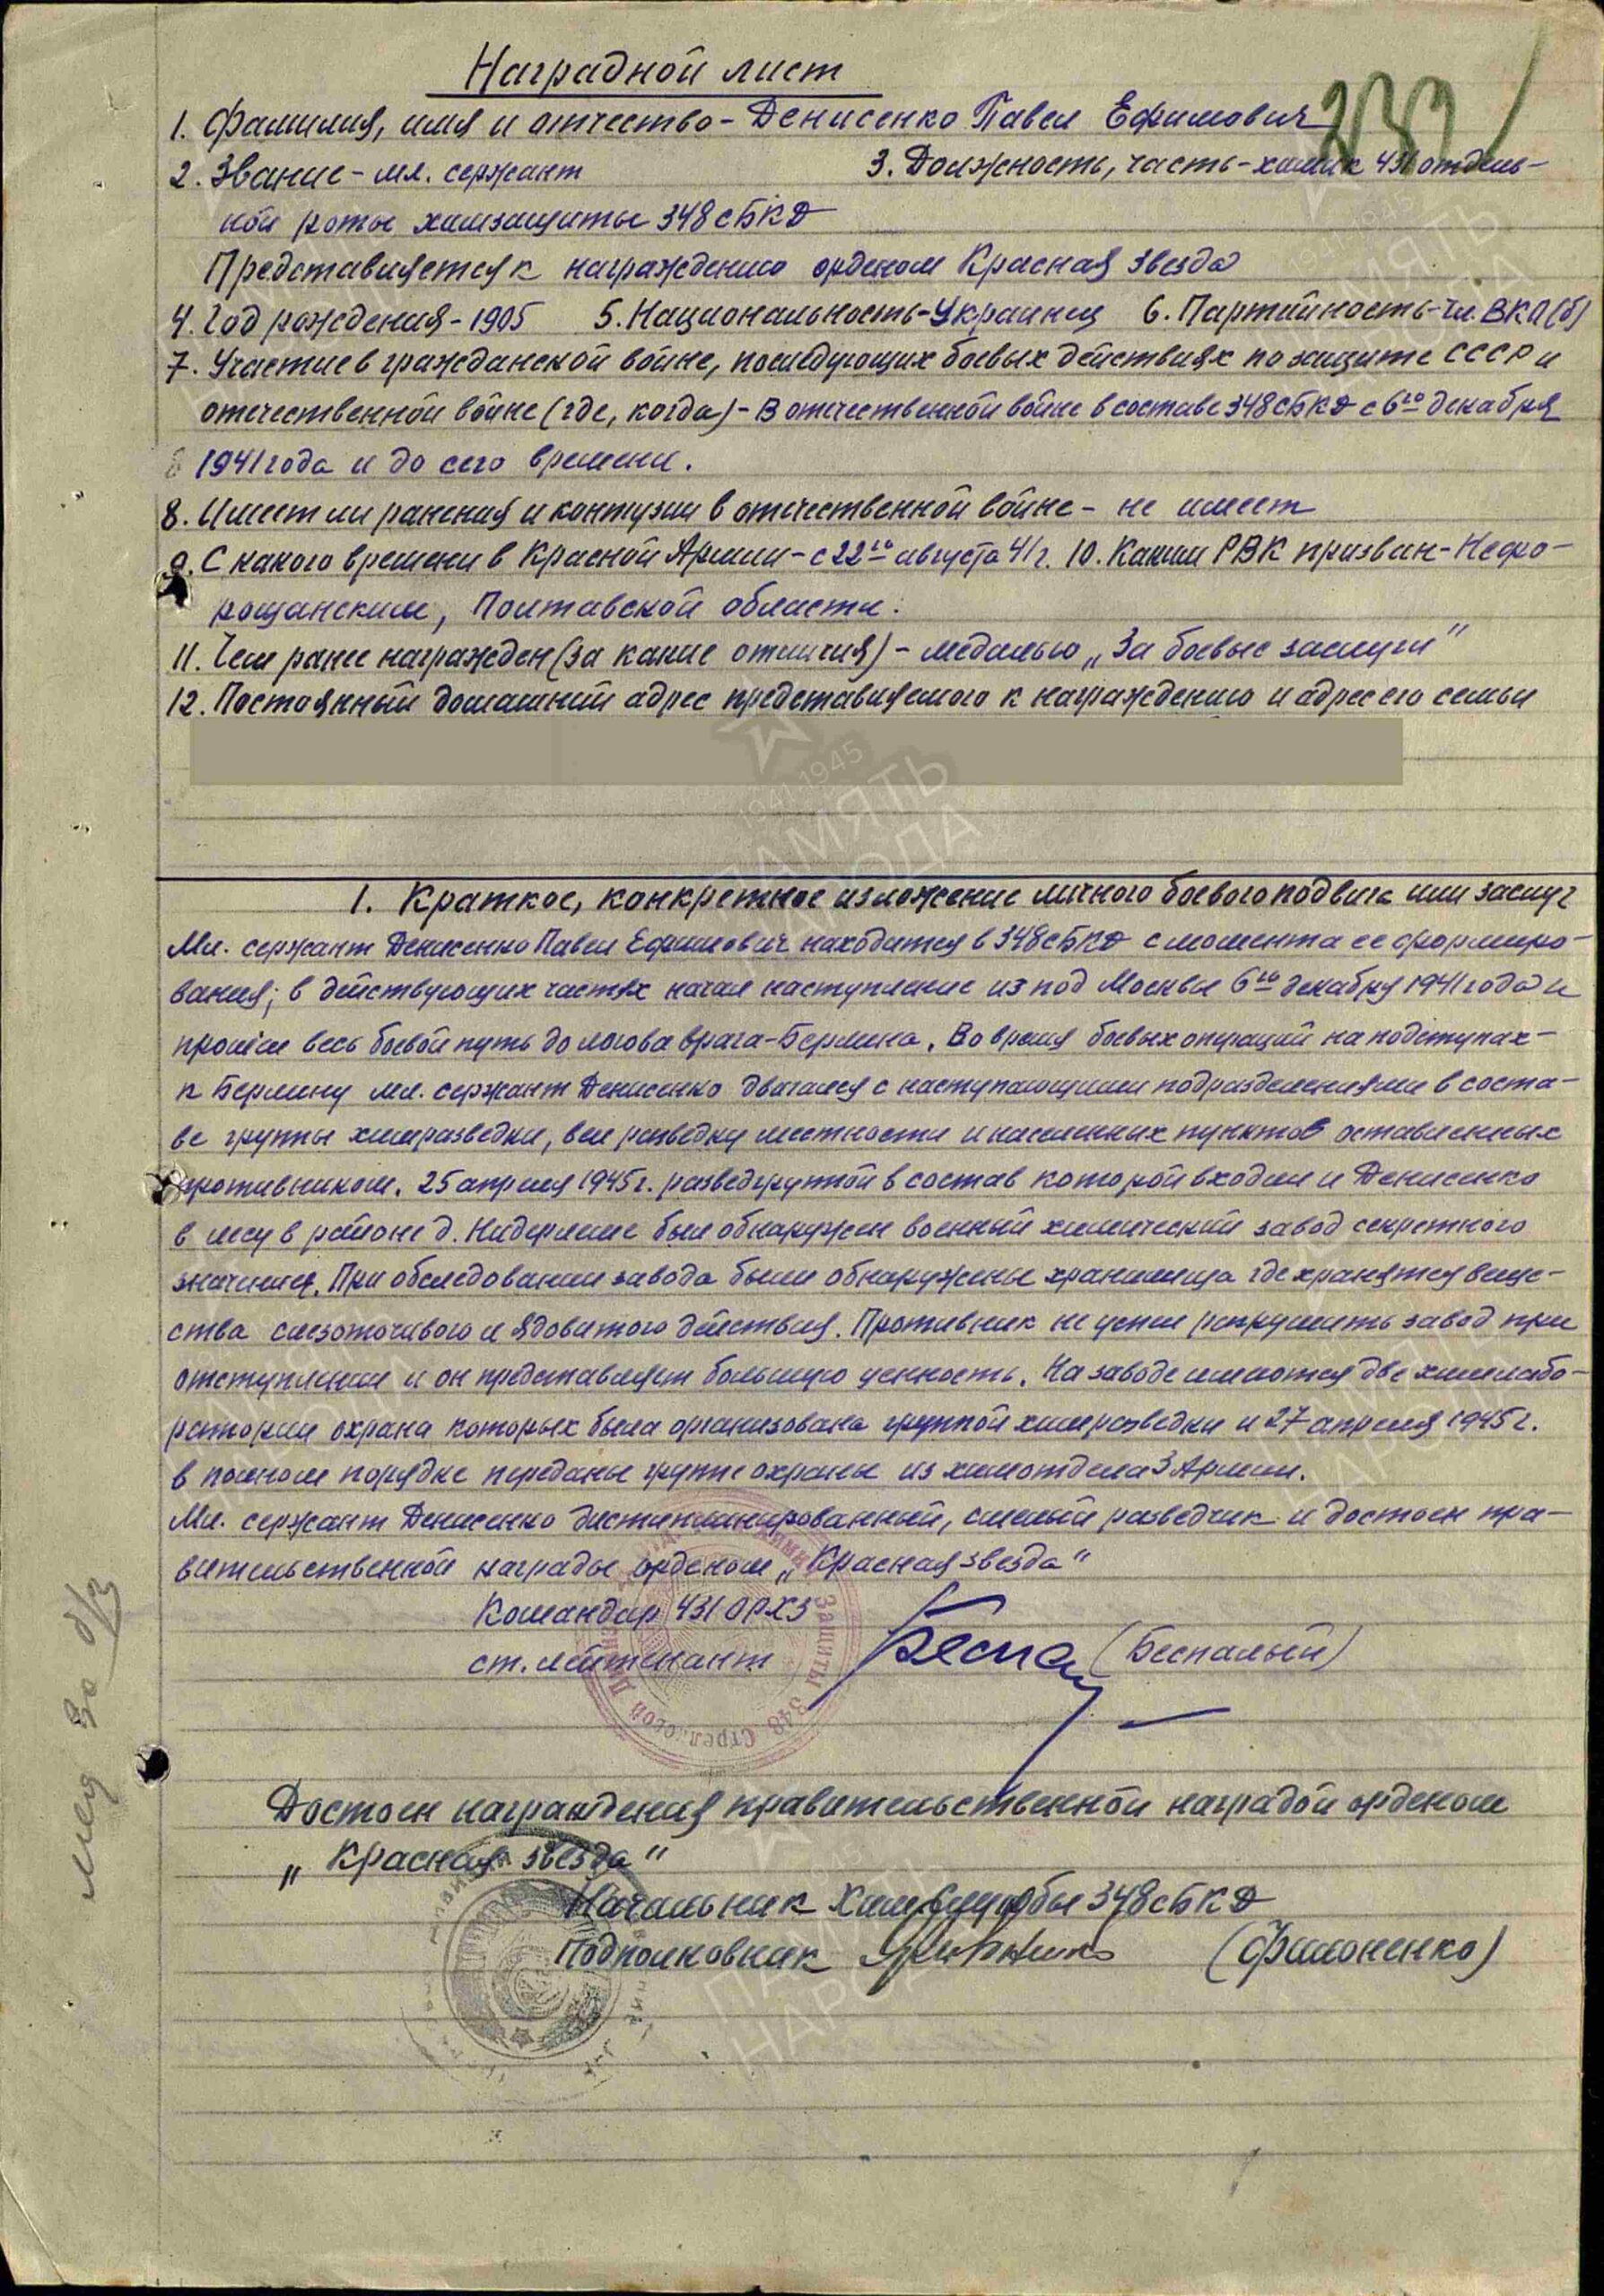 Наградной лист
1. Фамилия, имя и отчество - Денисенко Павел Ефимович
2. Звание - мл. сержант 3. Должность, часть - химик 431 отдель-
ной роты химзащиты 348 сБКД
Представляется к награждению орденом Красная звезда
4. Год рождения - 1905 5. Национальность - Украинец 6. Партийность - чл. ВКП(б)
7. Участие в гражданской войне, последующих боевых действиях по защите СССР и
отечественной войне (где, когда) - В отечественной войне в составе 348 сБКД с 6го декабря
1941 года и до сего времени.
8. Имеет ли ранения и контузии в отечественной войне - не имеет
9. С какого времени в Красной Армии - с 22го августа 41 г. 10. Каким РВК призван - Нефо-
рощанским, Полтавской области.
11. Чем ранее награжден (за какие отличия) - медалью „За боевые заслуги"
12. Постоянный домашний адрес представляемого к награждению и адрес его семьи
1. Краткое, конкретное изложение личного боевого подвига или заслуг
Мл. сержант Денисенко Павел Ефимович находится в 348 сБКД с момента ее формиро-
вания; в действующих частях начал наступление из под Москвы 6го декабря 1941 года и
прошел весь боевой путь до логова врага - Берлина. Во время боевых операций на подступах-
к Берлину мл. сержант Денисенко двигался с наступающими подразделениями в соста-
ве группы химразведки, вел разведку местности и населенных пунктов оставленных
противником. 25 апреля 1945 г. разведгруппой в состав которой входил и Денисенко
в лесу в районе д. Нидерлеме был обнаружен военный химический завод секретного
значения. При обследовании завода были обнаружены хранилища где хранятся веще-
ства слезоточивого и ядовитого действия. Противник не успел разрушить завод при
отступлении и он представляет большую ценность. На заводе имеются две химлабо-
ратории охрана которых была организована группой химразведки и 27 апреля 1945 г.
в полном порядке переданы группе охраны из химотдела 3 Армии.
Мл. сержант Денисенко дисциплинированный, смелый разведчик и достоен пра-
вительственной награды орденом „Красная звезда"
Командир 431 ОРХЗ
ст. лейтенант (Беспалый)
Защиты 348 Стрелковой
Достоен награждения правительственной наградой орденом
„Красная звезда"
Начальник Химслужбы 348 сБКД
Подполковник (Филоненко)
ПАМЯТЬ
НАРОДА
1941-1945